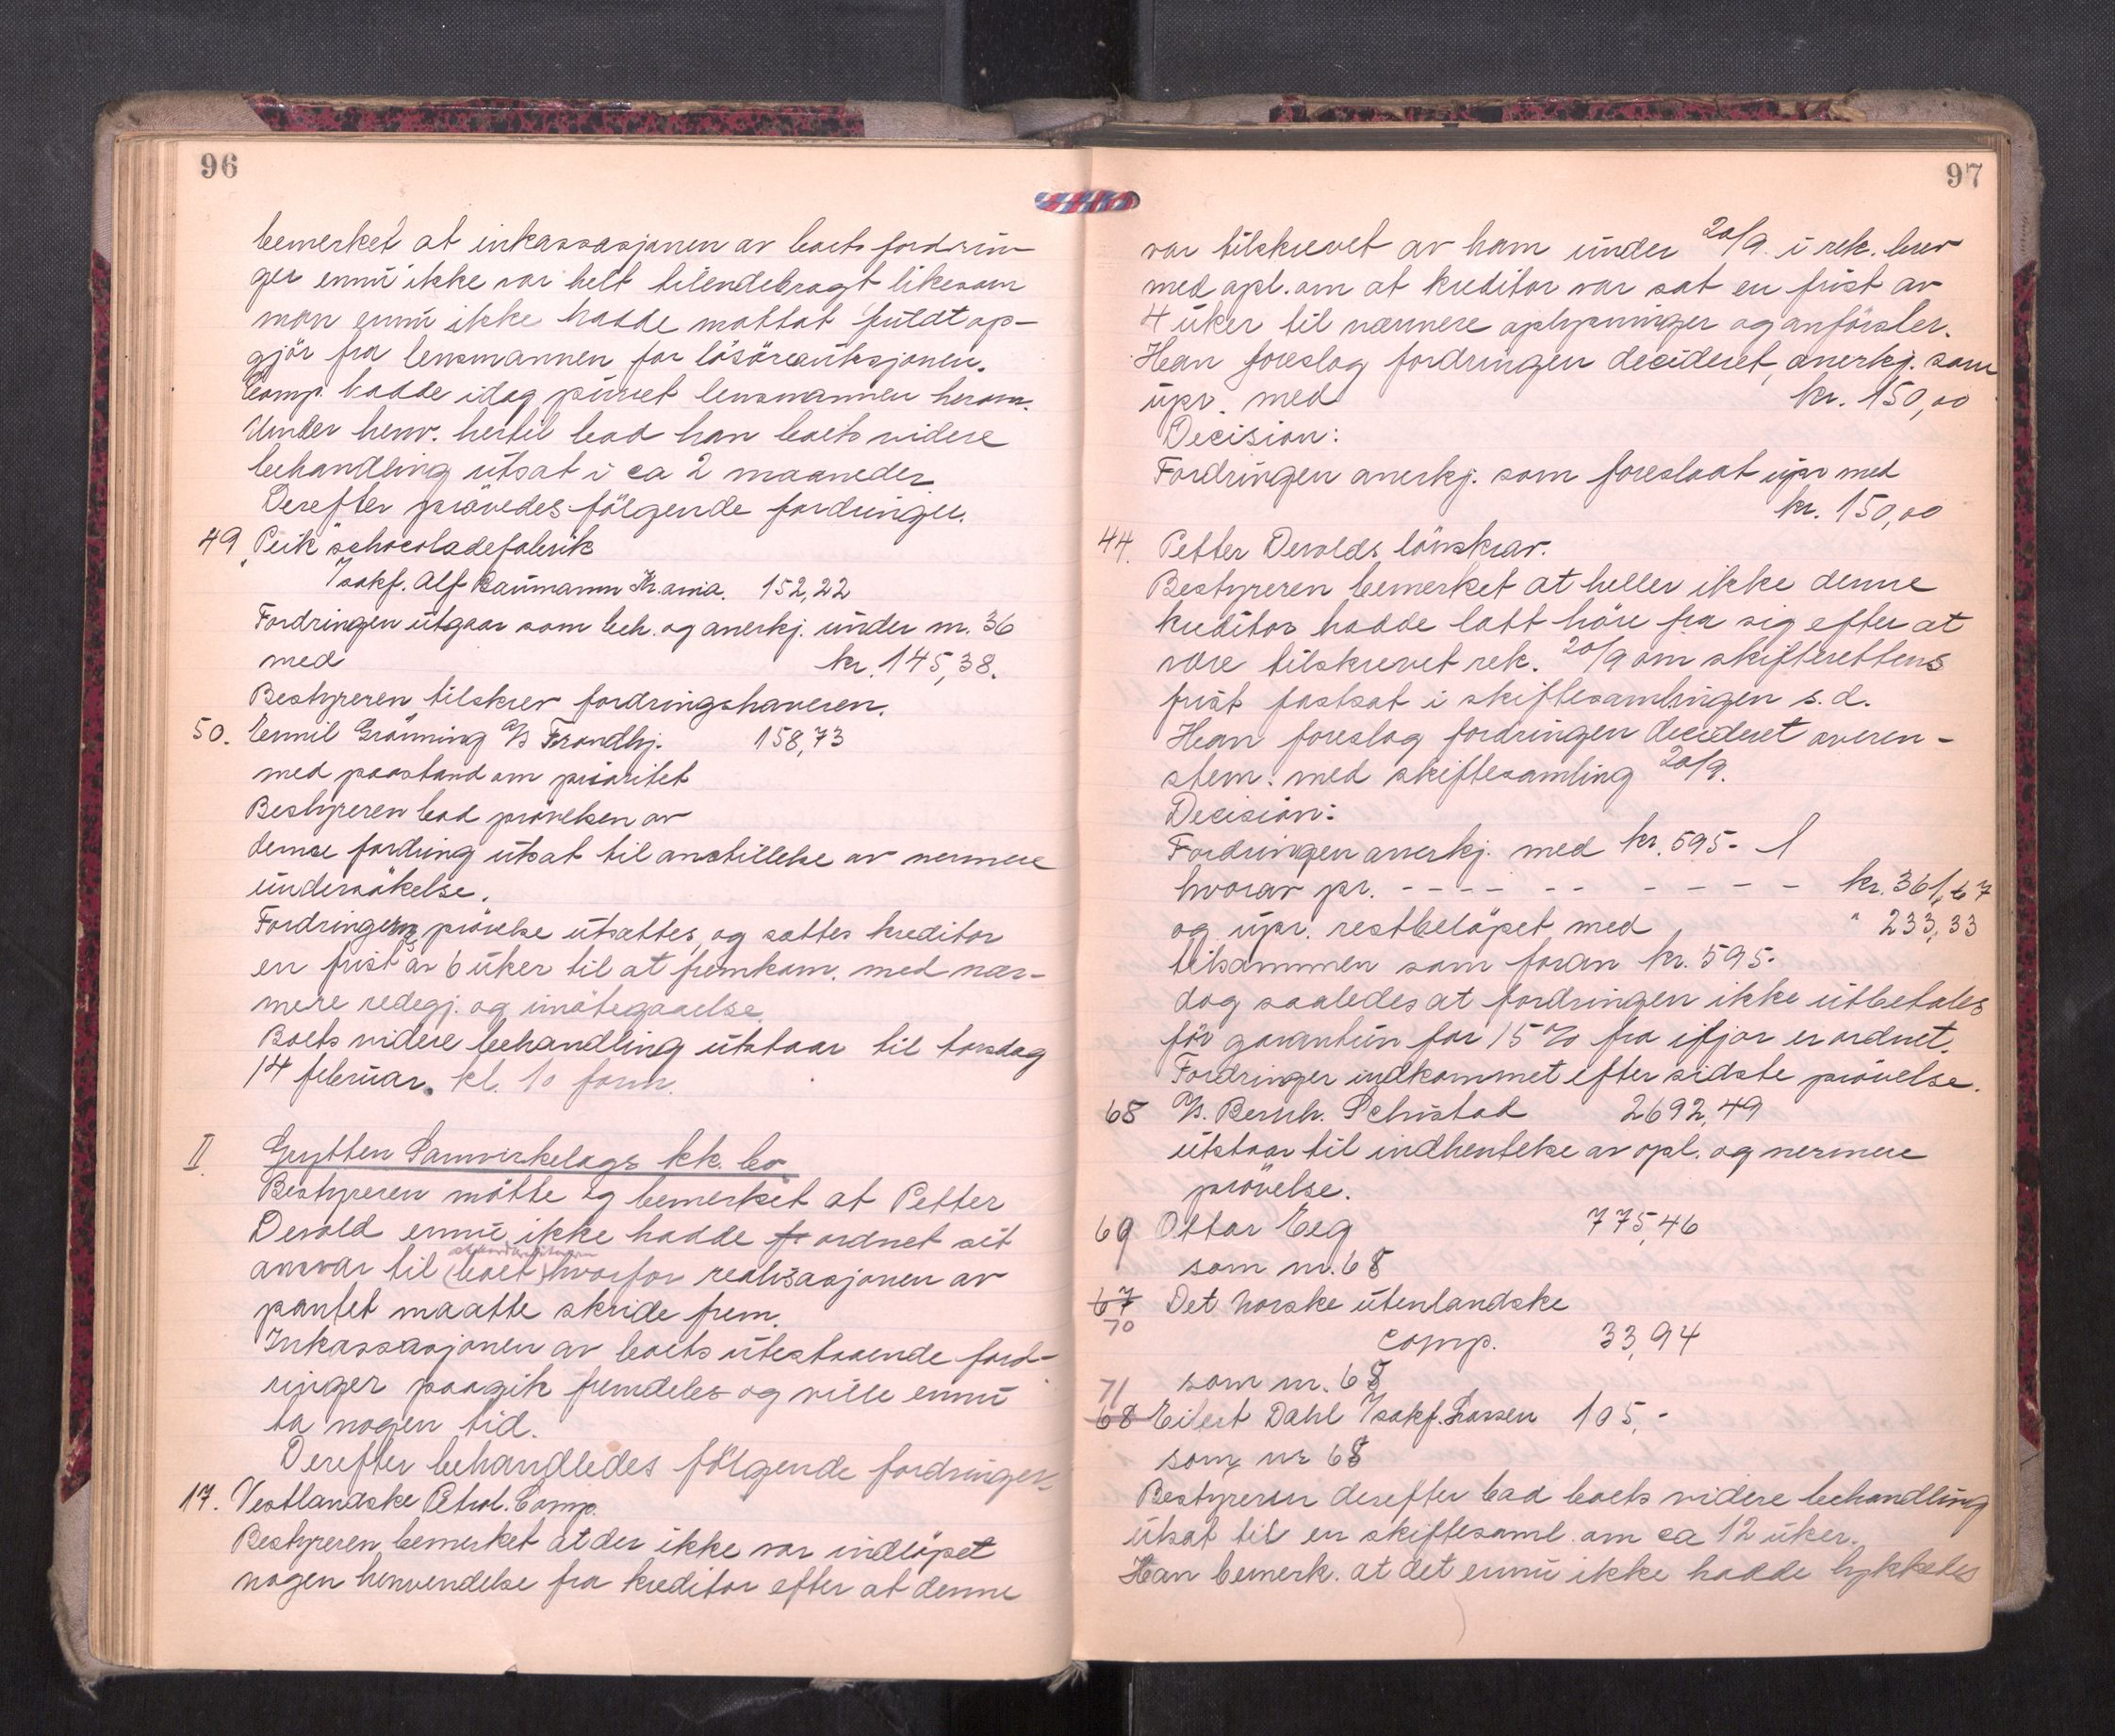 96
bemerket at inkassasjonen av boets fordrin-
ger ennu ikke var helt tilendebragt likesom
man ennu ikke hadde mottat fuldt op-
gjör fra lensmannen for lösöreauksjonen.
Comp. hadde idag purret lensmannen herom.
Under henv. hertil bad han boets videre
behandling utsat i ca 2 maaneder
Derefter prövedes fölgende fordringer.
49. Peik schocoladefabrik
v/sakf. Alf Baumann Kr.ania. 152,22
Fordringen utgaar som beh. og anerkj. under nr. 36
med kr. 145,38.
Bestyreren tilskrev fordringshaveren.
50. Emil Grönning A/S Trondhj. 158,73
med paastand om prioritet
Bestyreren bad prövelsen av
denne fordring utsat til anstillelse av nermere
undersökelse.
Fordringens prövelse utsattes, og sattes kreditor
en frist av 6 uker til at fremkom. med nær-
mere redegj. og imötegaaelse.
Boets videre behandling utstaar til torsdag
14 februar. kl. 10 form.
II. Grytten Samvirkelags kk. bo
Bestyreren mötte og bemerket at Petter
Devold ennu ikke hadde fr ordnet sit
ansvar til (boet) hvorfor realisasjonen av
pantet maatte skride frem.
Inkassasjonen av boets utestaaende ford-
ringer paagik fremdeles og ville ennu
ta nogen tid.
Derefter behandledes fölgende fordringer
17. Vestlandske Petrol. Comp.
Bestyreren bemerket at der ikke var indlöpet
nogen henvendelse fra kreditor efter at denne
97
var tilskrevet av ham under 20/9. i rek. brev
med opl. om at kreditor var sat en frist av
4 uker til nærmere oplysninger og anförsler.
Han foreslog fordringen decideret, anerkj. som
upr. med kr. 150,00
Decision:
Fordringen anerkj. som foreslaat upr med
kr. 150,00
44. Petter Devolds lönskrav.
Bestyreren bemerket at heller ikke denne
kreditor hadde latt höre fra sig efter at
være tilskrevet rek. 20/9 om skifterettens
frist fastsat i skiftesamlingen s.d.
Han foreslog fordringen decideret overen-
stem. med skiftesamling 20/9.
Decision:
Fordringen anerkj. med kr. 595-
hvorav pr. - - - - - - - - - - - kr. 361,67
og upr. restbelöpet med " 233,33
tilsammen som foran kr. 595.
dog saaledes at fordringen ikke utbetales
för garantien for 15% fra ifjor er ordnet.
Fordringer indkommet efter sidste prövelse.
68 A/S. Bernh. Schustad 2692,49
utstaar til indhentelse av opl. og nermere
prövelse.
69 Ottar Eeg 775,46
som nr. 68
67
70 Det norske utenlandske
Comp. 33,94
som nr. 68
71
68 Eilert Dahl v/sakf. Larsen 105,-
som nr 68
Bestyreren derefter bad boets videre behandling
utsat til en skiftesaml. om ca 12 uker.
Han bemerk. at det ennu ikke hadde lykkedes